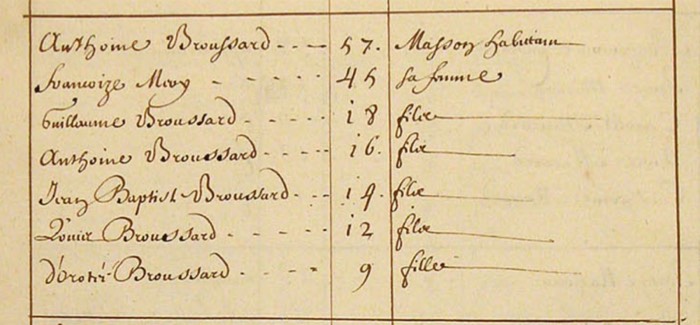 Anthoine Broussard - - - - 57. Masson habittant
Francoize Mory - - - - - - 45 sa femme
Guillaume Broussard - - - - 18 filz
Anthoine Broussard - - - - 16. filz
Jean Baptist Broussard - - - 14. filz
Broussard - - - - 12 filz
Broussard - - - - 9 fille